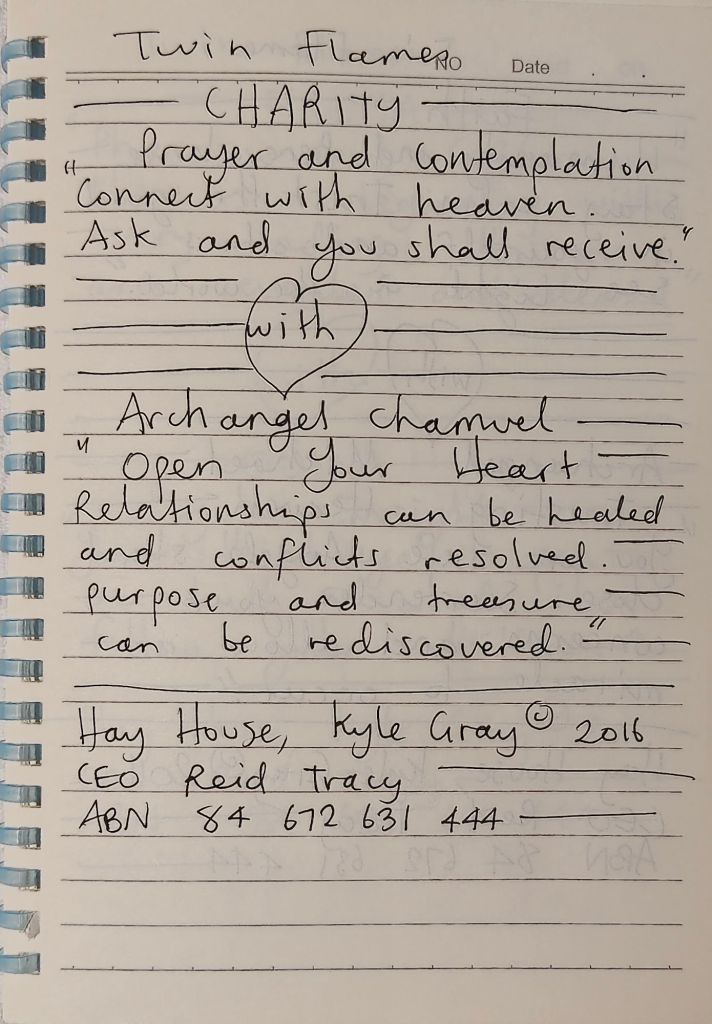 Twin Flames
NO Date . .
CHARITY
" Prayer and Contemplation
Connect with heaven.
Ask and you shall receive."
with
Archangel Chamuel
" Open Your Heart
Relationships can be healed
and conflicts resolved.
purpose and treasure
can be rediscovered."
Hay House, Kyle Gray © 2016
CEO Reid Tracy
ABN 84 672 631 444